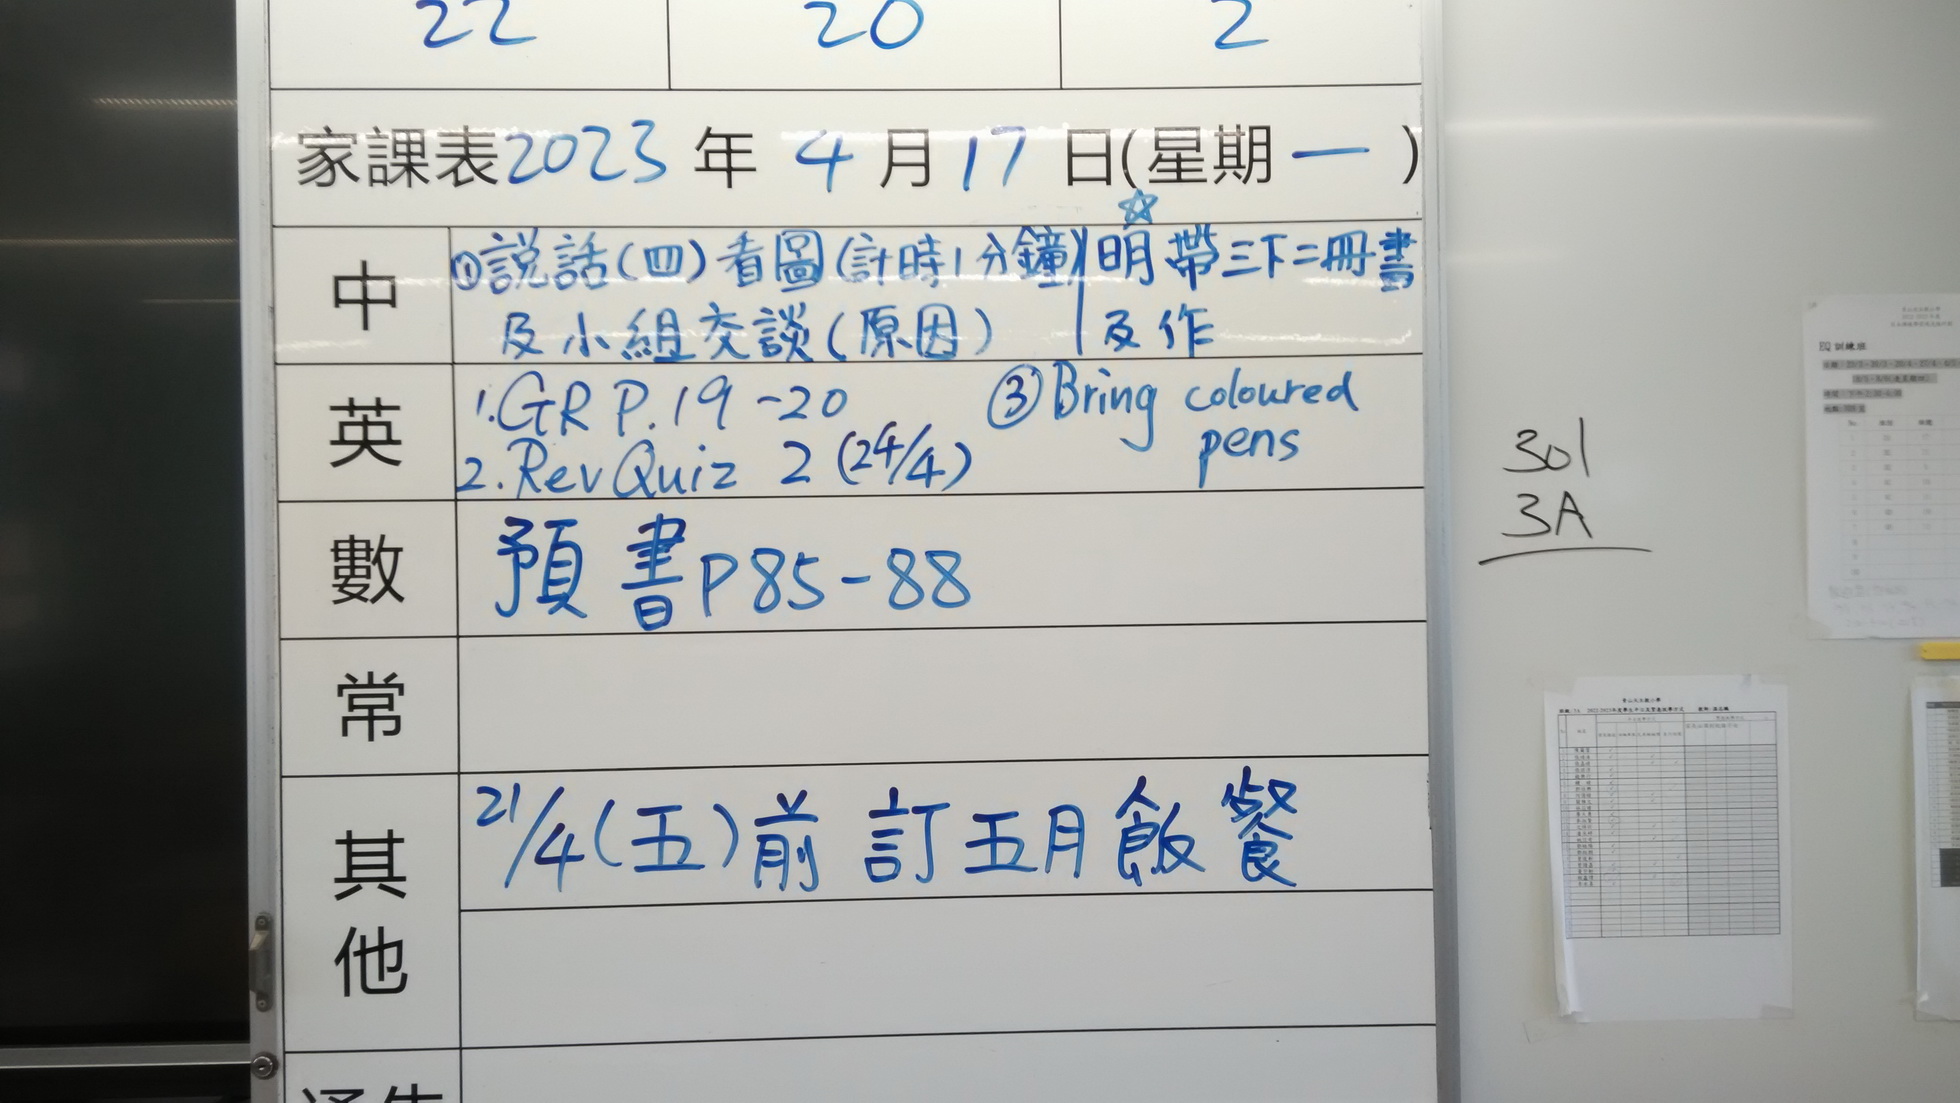 22 20 2
家課表2023年4月17日(星期一)
☆
中
①説話(四)看圖(計時1分鐘)
及小組交談(原因)
明帶三下二冊書
及作
英
1.GR P.19-20
2.Rev Quiz 2 (24/4)
③Bring coloured
pens
數
預書P85-88
常
其他
21/4(五)前訂五月飯餐
通告
301
3A
EQ 訓練班